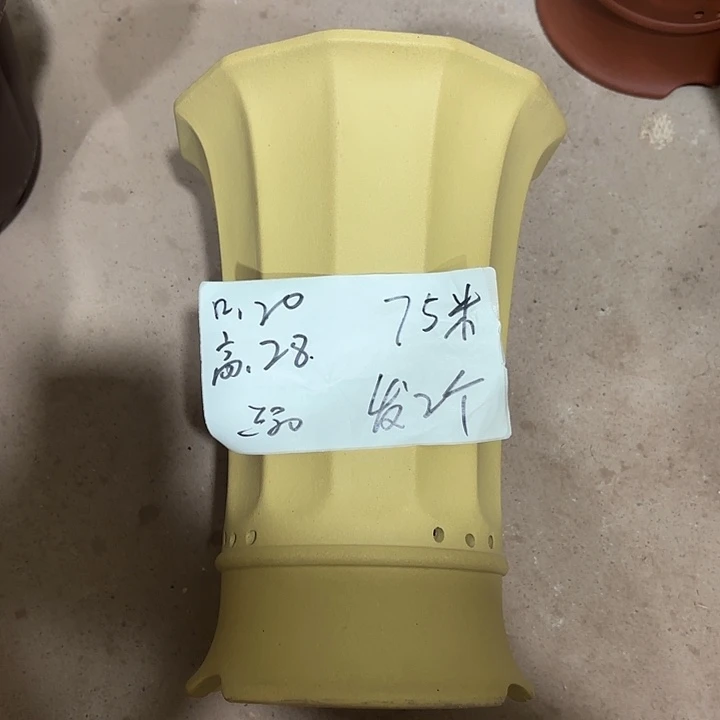 口.20 75米
高.28.
发2个